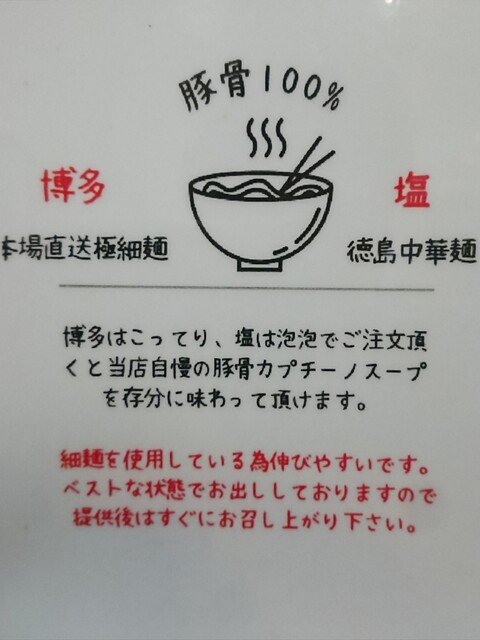 豚骨100%
博多
塩
本場直送極細麺
徳島中華麺
博多はこってり、塩は泡泡でご注文頂
くと当店自慢の豚骨カプチーノスープ
を存分に味わって頂けます。
細麺を使用している為伸びやすいです。
ベストな状態でお出ししておりますので
提供後はすぐにお召し上がり下さい。